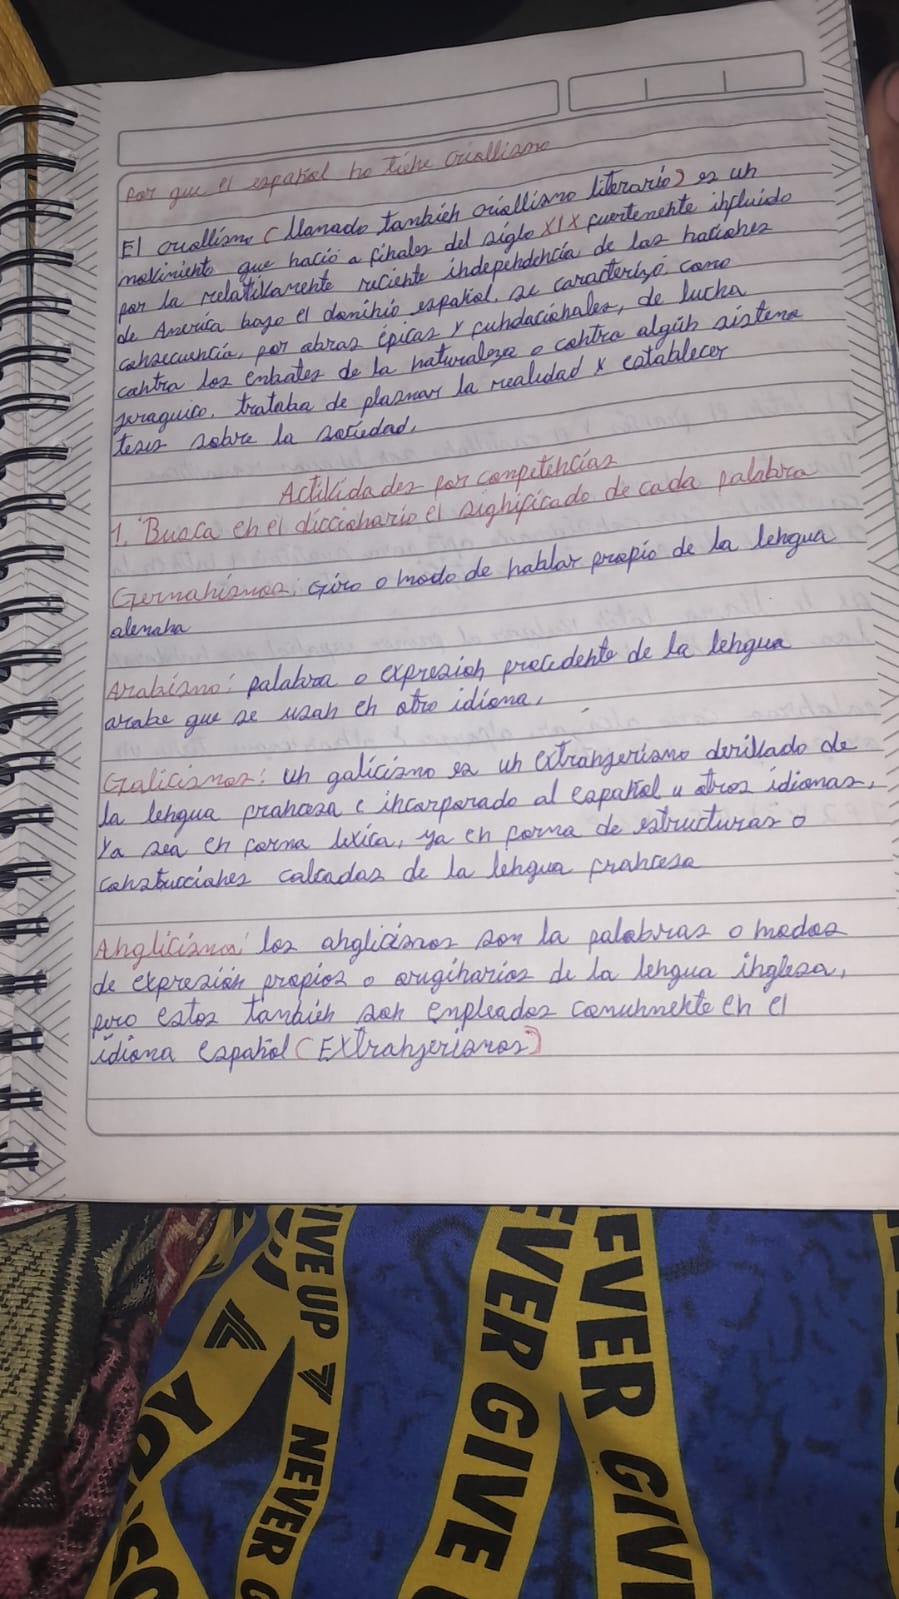 Por que el español no tiene criollismo
El criollismo (llamado también criollismo literario) es un
movimiento que nació a finales del siglo XIX fuertemente influido
por la relativamente reciente independencia de las naciones
de America bajo el dominio español. se caracterizó, como
consecuencia, por obras épicas y fundacionales, de lucha
contra los enbates de la naturaleza o contra algún sistema
jeraquico. trataba de plasmar la realidad y establecer
tesis sobre la sociedad.
Actividades por competencias
1. Busca en el diccionario el significado de cada palabra
Germanismos: Giro o modo de hablar propio de la lengua
alemana
Arabismo: palabra o expresion procedente de la lengua
arabe que se usan en otro idioma.
Galicismos: un galicismo es un extrangerismo derivado de
la lengua francesa e incorporado al español u otros idiomas,
ya sea en forma lexica, ya en forma de estructuras o
construcciones calcadas de la lengua francesa
Anglicismos: los anglicismos son la palabras o modos
de expresión propios o originarios de la lengua inglesa,
pero estos también son empleados comunmente en el
idioma español (Extrangerismos)
IVE UP
NEVER G
EVER GIVE
EVER GIV